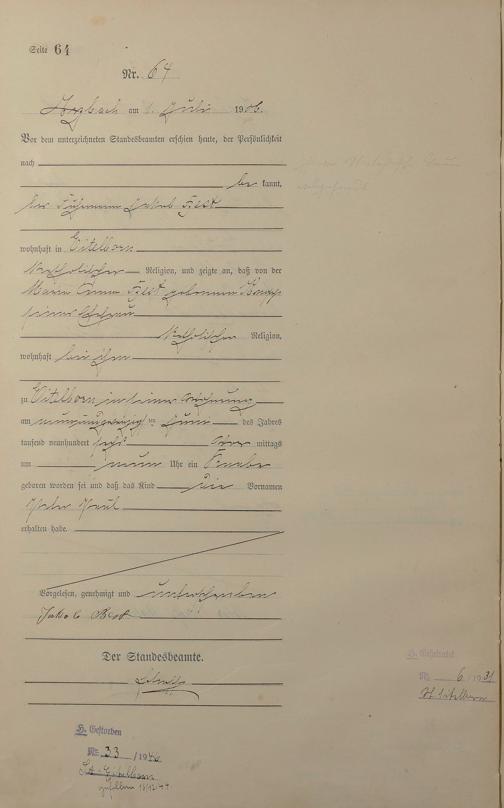 Seite 64
Nr. 64
am 1. Juli 1906.
Vor dem unterzeichneten Standesbeamten erschien heute, der Persönlichkeit
nach
be kannt,
der Jakob
wohnhaft in Eitelborn
katholischer Religion, und zeigte an, daß von der
Maria Anna geborenen Knopp
seiner Ehefrau
katholischer Religion,
wohnhaft bei ihm
zu Eitelborn in seiner Wohnung
am neunundzwanzigsten Juni des Jahres
tausend neunhundert sechs Vor mittags
um neun Uhr ein Knabe
geboren worden sei und daß das Kind die Vornamen
Peter Paul
erhalten habe.
Vorgelesen, genehmigt und unterschrieben
Jakob
Der Standesbeamte.
H. Geheiratet
Nr. 6/1931
Eitelborn
H. Gestorben
Nr. 33/19
Eitelborn